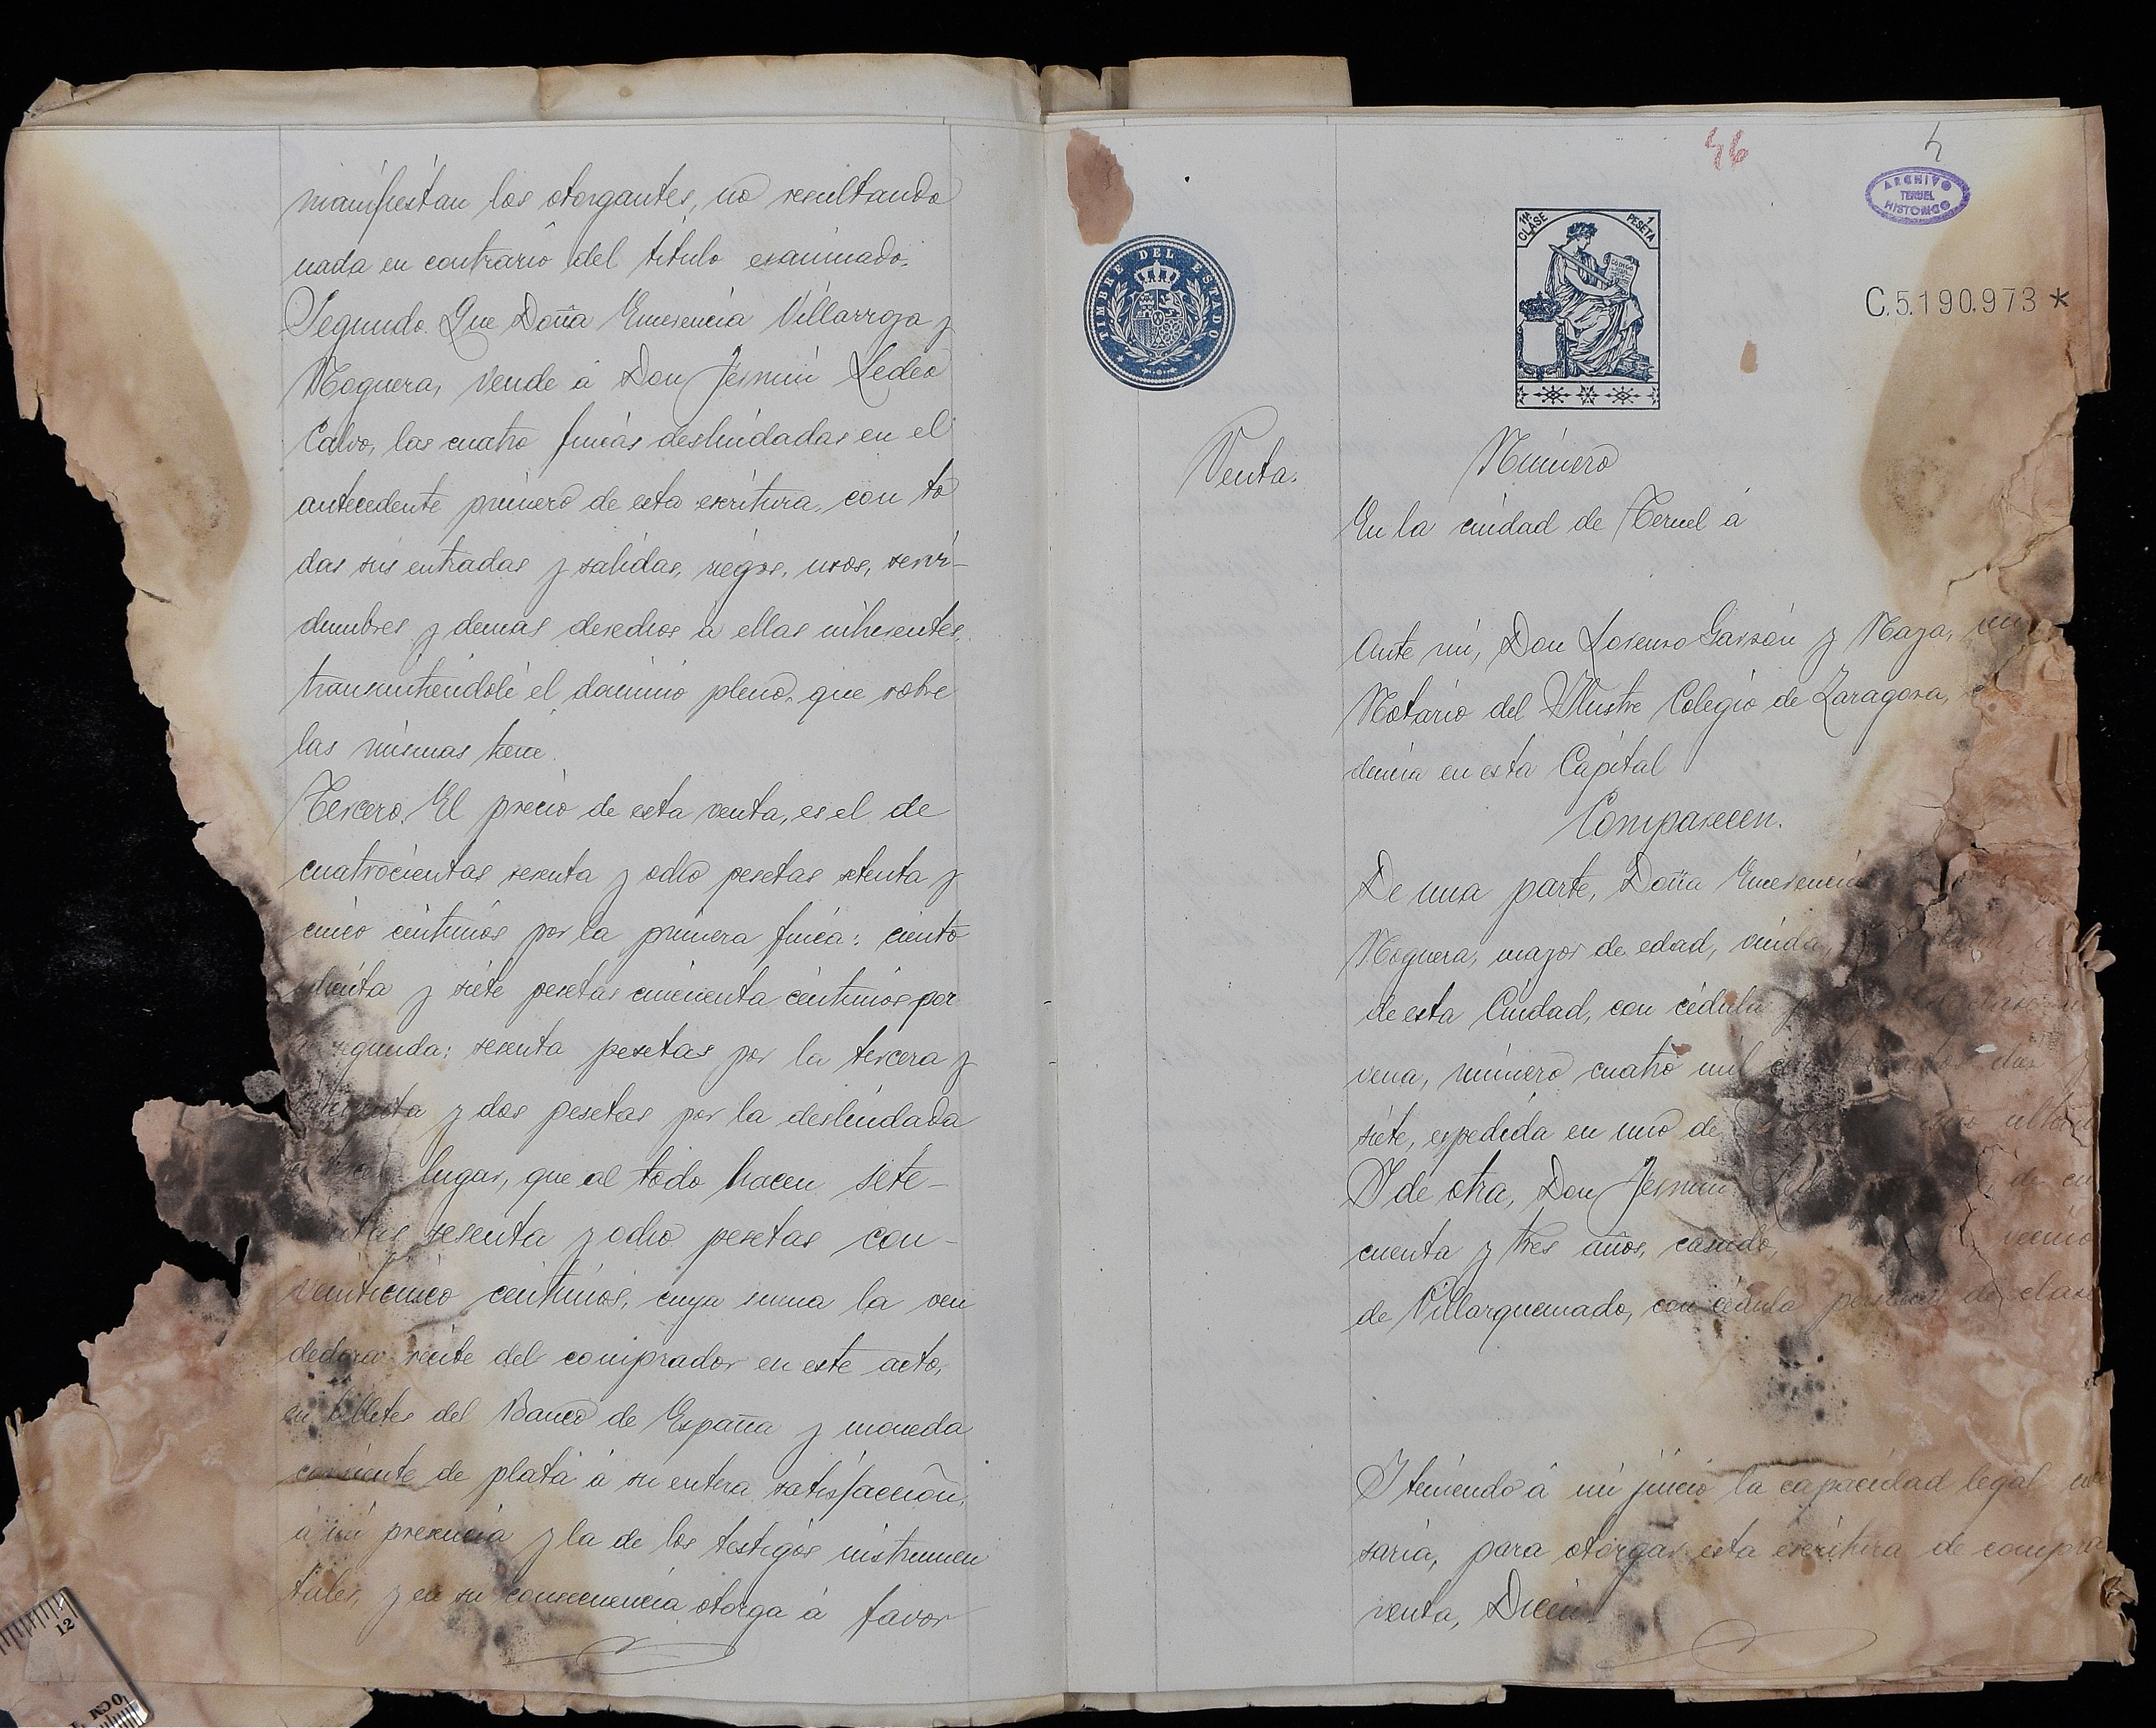 manifiestan los otorgantes, no resultando
nada en contrario del titulo examinado.
Segundo. Que Doña Emerencia Villarroya y
Noguera, vende á Don Fermin Ledea
Calvo, las cuatro fincas deslindadas en el
antecedente primero de esta escritura, con to
das sus entradas y salidas, riegos, usos, servi-
dumbres y demás derechos á ellas inherentes,
transmitiendole el dominio pleno, que sobre
las mismas tiene.
Tercero. El precio de esta venta, es el de
cuatrocientas sesenta y ocho pesetas setenta y
cinco centimos por la primera finca: ciento
y siete pesetas cincuenta centimos por
segunda: sesenta pesetas por la tercera y
y dos pesetas por la deslindada
lugar, que al todo hacen sete-
sesenta y ocho pesetas con-
veinticinco centimos, cuya suma la ven
dedora recibe del comprador en este acto,
en billetes del Banco de España y moneda
corriente de plata á su entera satisfacción,
á mi presencia y la de los testigos instrumen
tales, y en su consecuencia otorga á favor
12
46
4
ARCHIVO
TERUEL
HISTORICO
TIMBRE DEL ESTADO
CLASE
1 PESETA
C.5.190.973*
Venta.
Número
En la ciudad de Teruel á
Ante mi, Don Lorenzo Garzón y Naya,
Notario del Ilustre Colegio de Zaragoza,
dencia en esta Capital
Comparecen.
De una parte, Doña Emerencia
Noguera, mayor de edad, viuda,
de esta Ciudad, con cédula
vena, número cuatro mil
siete, expedida en uno de
Y de otra, Don Fermin
cuenta y tres años, casado, vecino
de Villarquemado, con cédula personal de clase
Y teniendo á mi juicio la capacidad legal
saria, para otorgar esta escritura de compra
venta, Dicen: